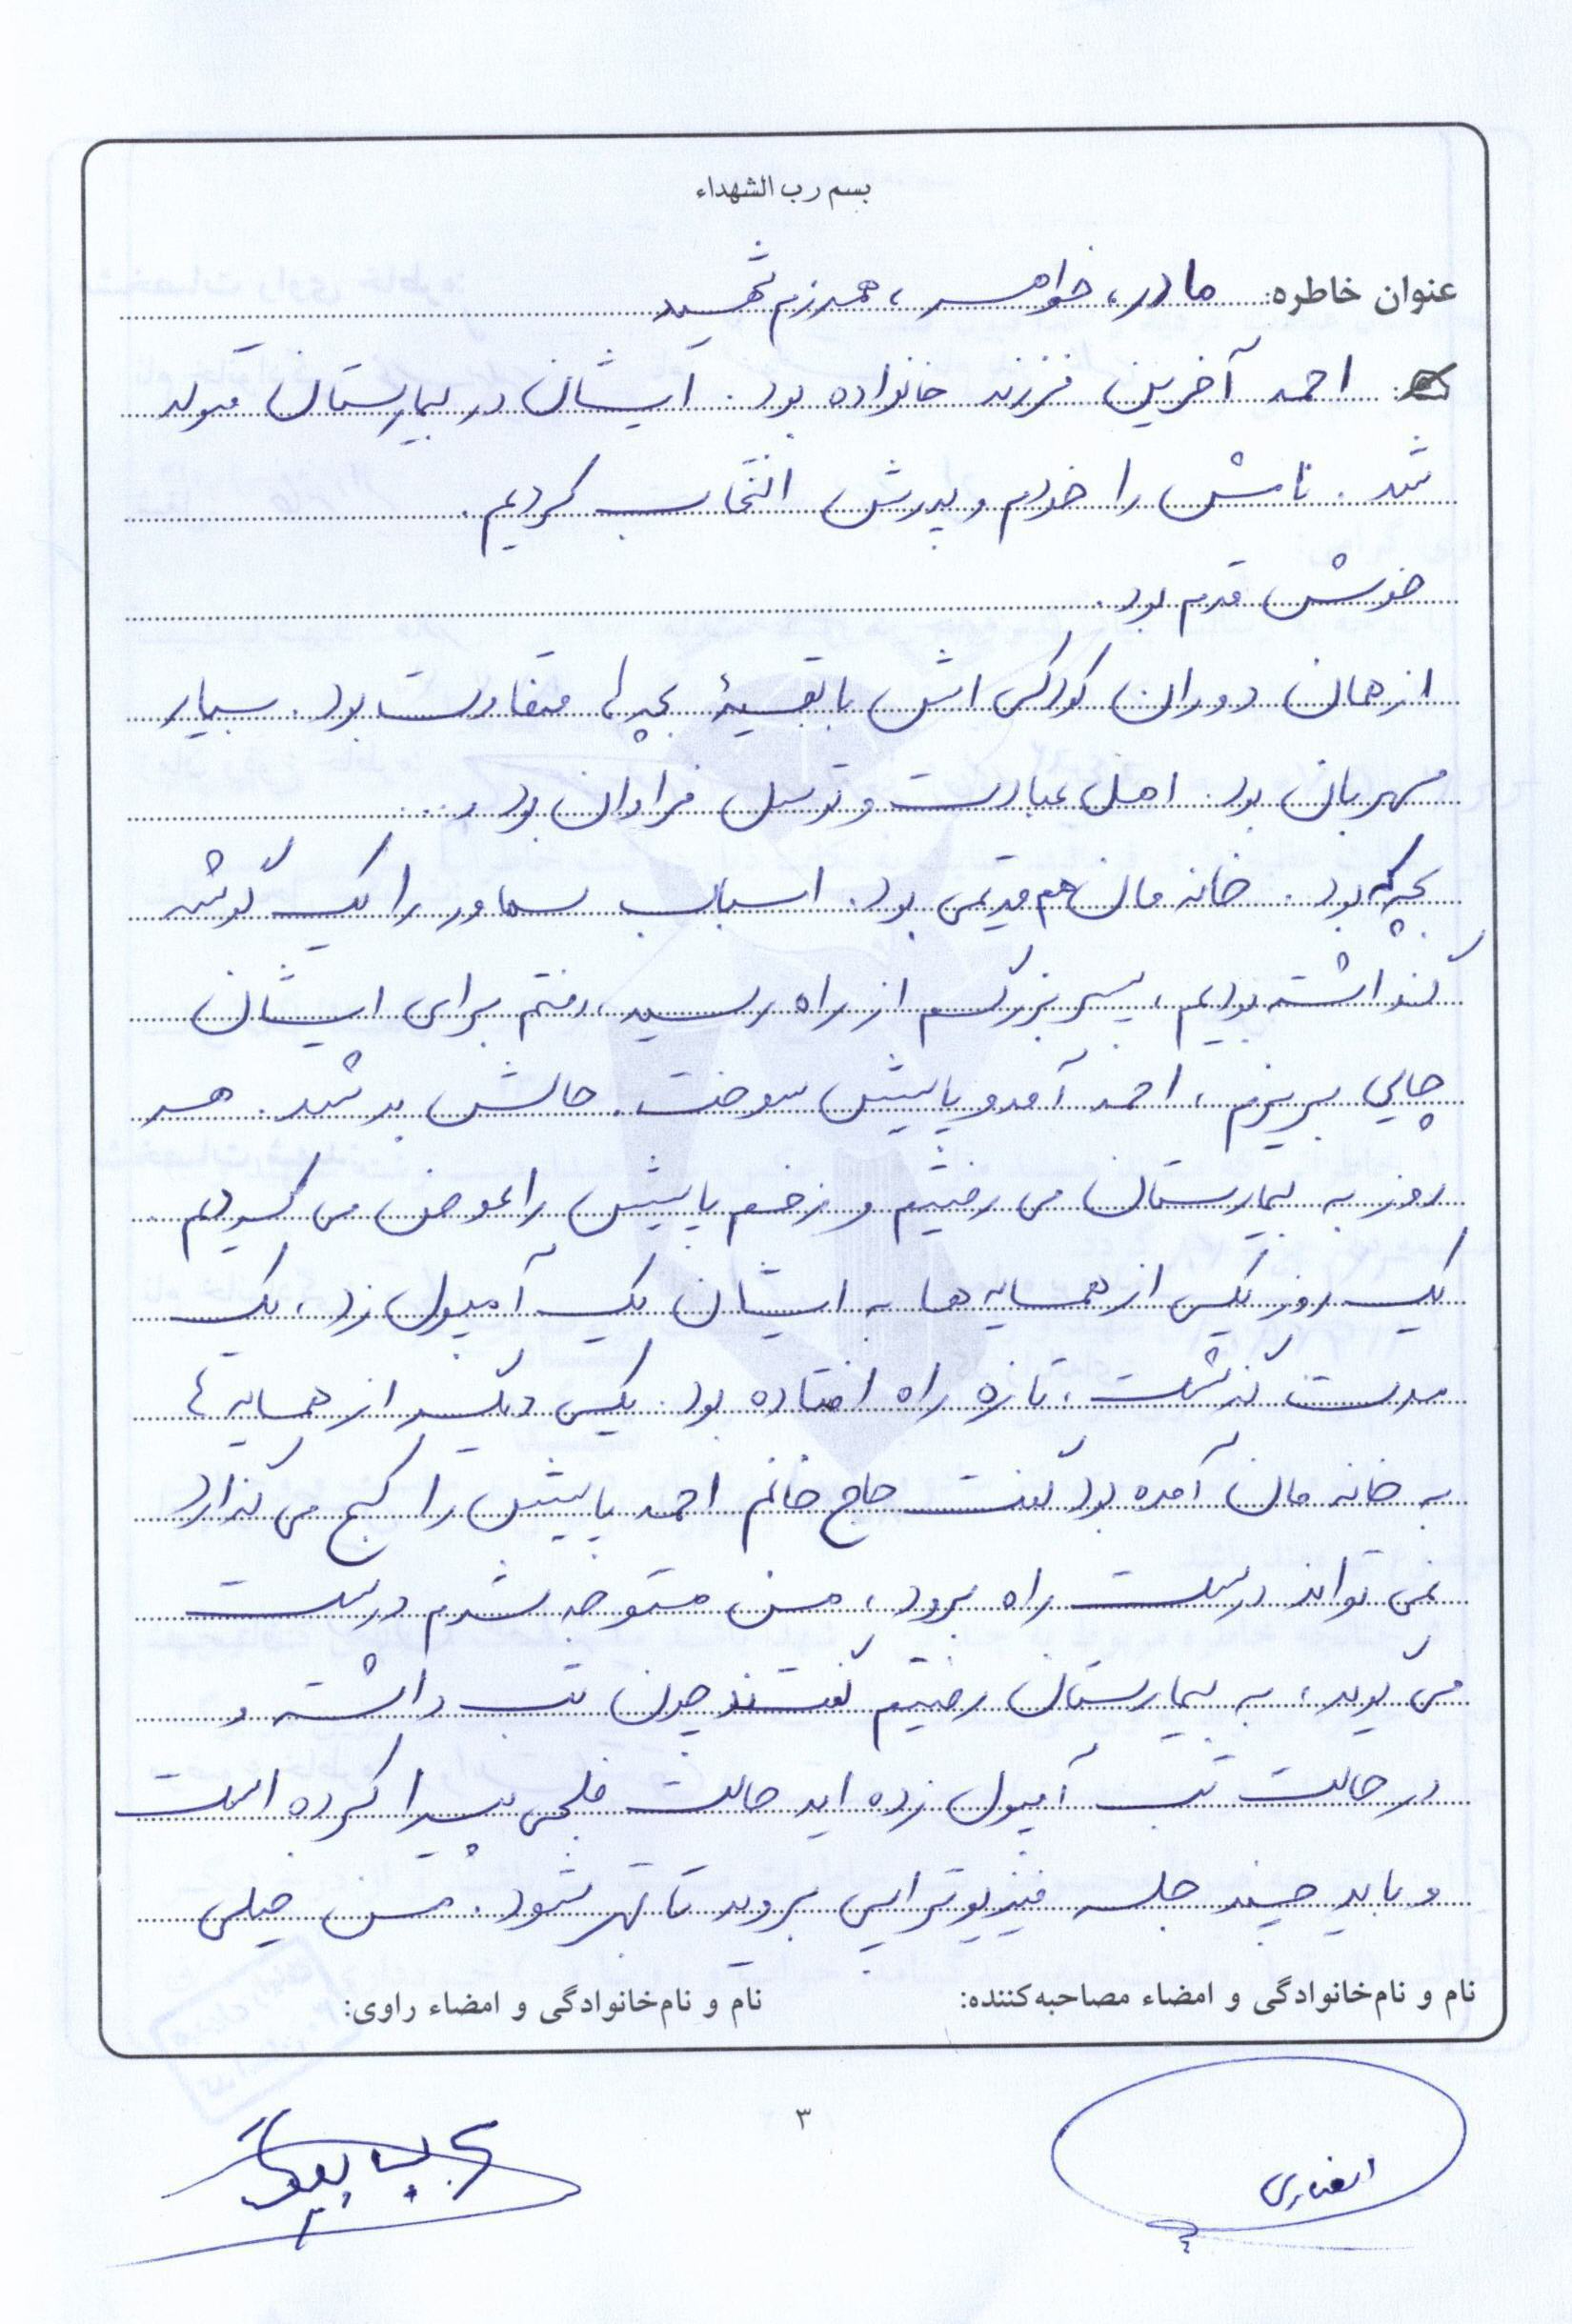 بسم رب الشهداء
عنوان خاطره: مادر، خواهر، همرزم شهید
احمد آخرین فرزند خانواده بود. ایشان در بیمارستان متولد
شد. نامش را خودم و پدرش انتخاب کردیم.
خوش قدم بود.
از همان دوران کودکی اش با بقیهٔ بچه ها متفاوت بود. بسیار
مهربان بود. اهل عبادت و توسل فراوان بود و...
بچه که بود. خانه مان هم قدیمی بود. اسباب سماور را یک گوشه
گذاشته بودیم، پسر بزرگم از راه رسید، رفتم برای ایشان
چایی بریزم، احمد آمد و پایش سوخت. حالش بد شد. هر
روز به بیمارستان می رفتیم و زخم پایش را عوض می کردیم
یک روز یکی از همسایه ها به ایشان یک آمپول زد، یک
مدت گذشت، تازه راه افتاده بود. یکی دیگر از همسایه ها
به خانه مان آمده بود گفت حاج خانم احمد پایش را کج می گذارد
نمی تواند درست راه برود، من متوجه شدم درست
می گوید، به بیمارستان رفتیم گفتند چون تب داشته و
در حالت تب آمپول زده اید حالت فلجی پیدا کرده است
و باید چند جلسه فیزیوتراپی بروید تا بهتر شود. من خیلی
نام و نام‌خانوادگی و امضاء مصاحبه‌کننده:
نام و نام‌خانوادگی و امضاء راوی:
۳